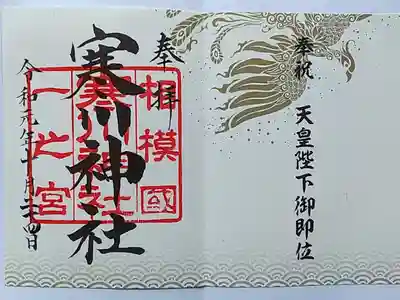 奉祝 天皇陛下御即位
奉拝
相模國
寒川神社
一之宮
寒川神社
令和元年十月二十四日